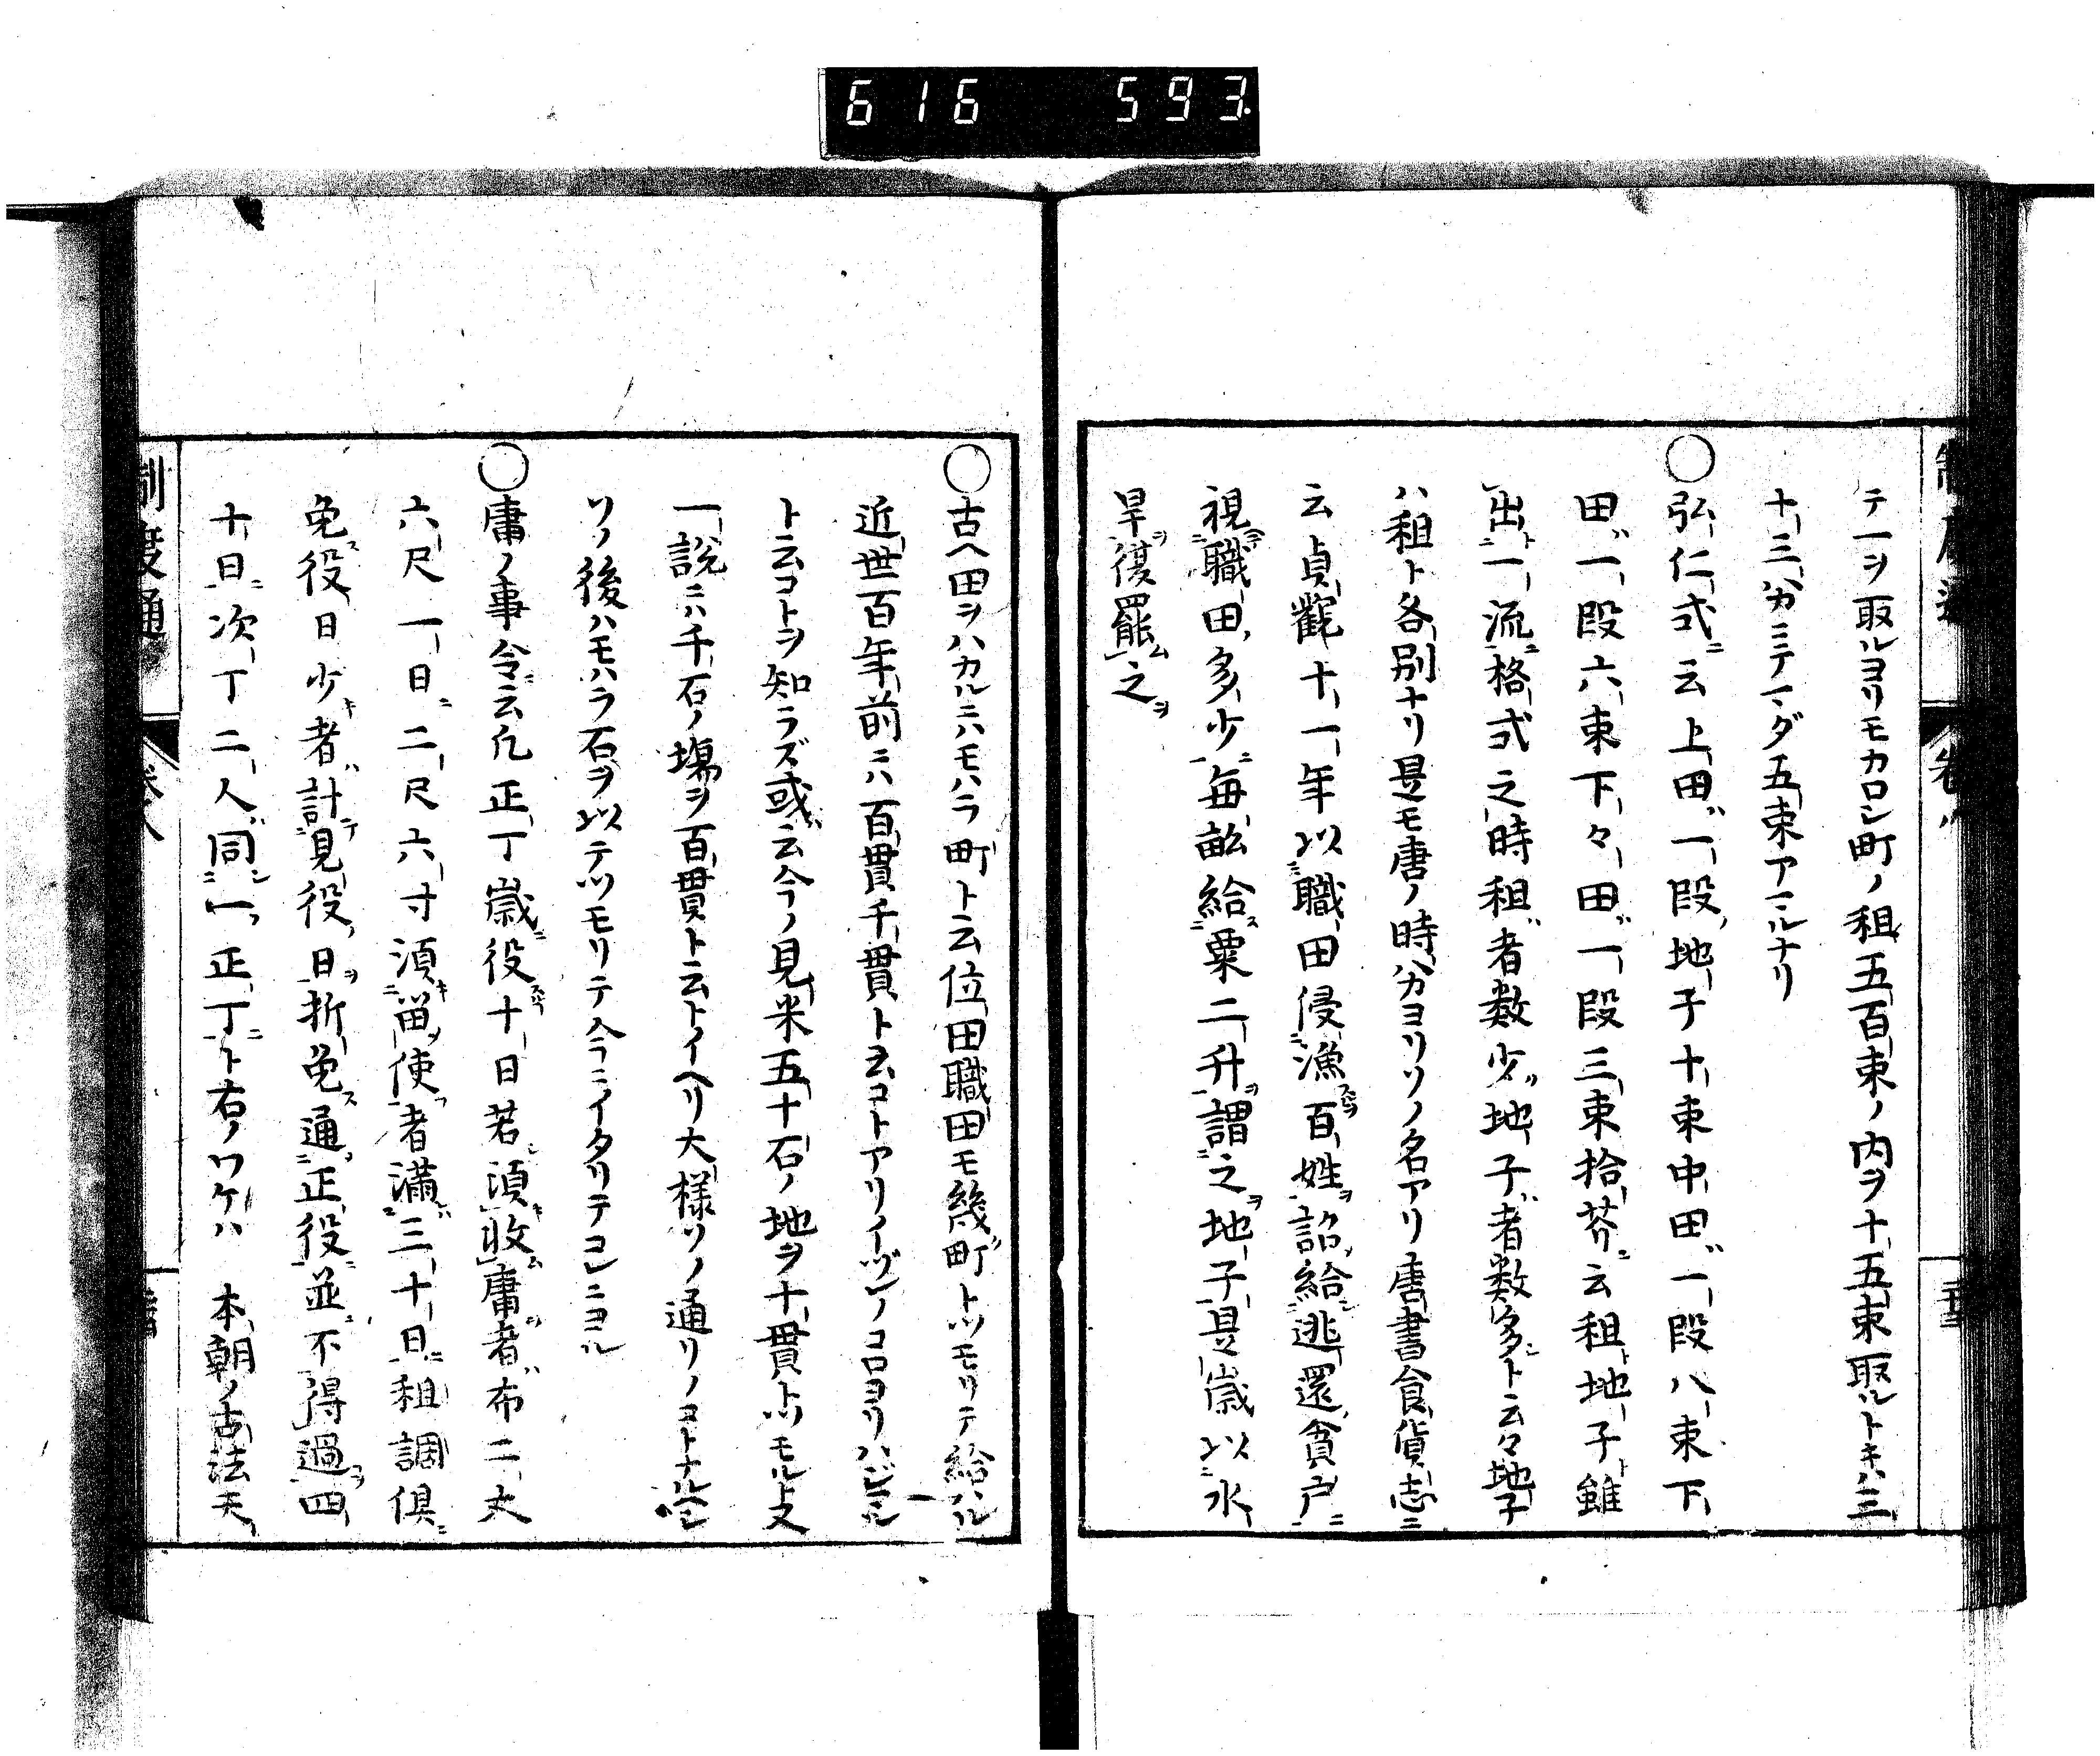 616 593
テ一ヲ取ルヨリモカロシ町ノ租五百束ノ内ヲ十五束取ルトキハ三
十三分ニテマダ五束アマルナリ
○弘仁式云上田一段地子十束中田一段八束下
田一段六束下々田一段三束拾芥云租地子雖
出一流格式之時租者数少地子者数多ト云々地子
ハ租ト各別ナリ是モ唐ノ時分ヨリソノ名アリ唐書食貨志ニ
云貞観十一年以職田侵漁百姓詔給逃還貧戸
視職田多少毎畝給粟二升謂之地子是歳以水
旱復罷之
制度通 巻八
○古ヘ田ヲハカルニハモハラ町ト云位田職田モ幾町トツモリテ給ハル
近世百年前ニハ百貫千貫ト云コトアリイヅレノコロヨリハジマル
ト云コトヲ知ラズ或云今ノ見米五十石ノ地ヲ十貫トツモル又
一説ニハ千石ノ場ヲ百貫ト云トイヘリ大様ソノ通リノコトナルベシ
ソノ後ハモハラ石ヲ以テツモリテ今ニイタリテコレニヨル
○庸ノ事令云凡正丁歳役十日若須收庸者布二丈
六尺一日二尺六寸須留使者満三十日租調倶
免役日少者計見役日折免通正役並不得過四
十日次丁二人同一正丁ト右ノワケハ 本朝ノ古法夫
制度通 巻八